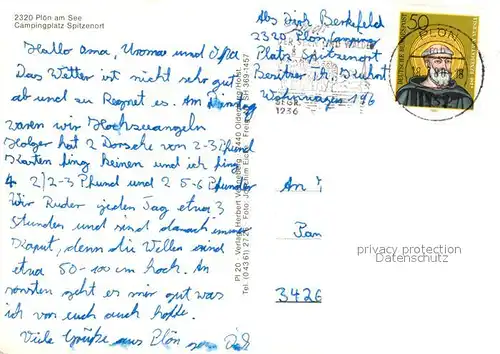 2320 Plön am See
Campingplatz Spitzenort
Hallo Oma, Uroma und Opa
Das Wetter ist nicht sehr gut
ab und zu Regnet es. Am
waren wir Hochseeangeln
Holger hat 2 Dorsche von 2-3 Pfund
Karsten fing keinen und ich fing
4 2/2-3 Pfund und 2 5-6 Pfunder
Wir Ruder jeden Tag etwa 3
Stunden und sind danach immer
Kaput, denn die Wellen sind
etwa 50-100 cm hoch. An
sonsten geht es mir gut was
ich von euch auch hoffe.
Viele Grüße aus Plön von
Pl 20 Verlag Herbert 2440 Oldenburg/Holst.
Tel. (0 43 61) 27 26 Foto: Joachim SH 369-1457
Abs Dirk Berkefeld
2320 Plön Camping
Platz Spitzenort
Besitzer H. Kuhnt
Wohnwagen 196
GEGR.
1236
50
PLÖN
18
An
3426
privacy protection
Datenschutz